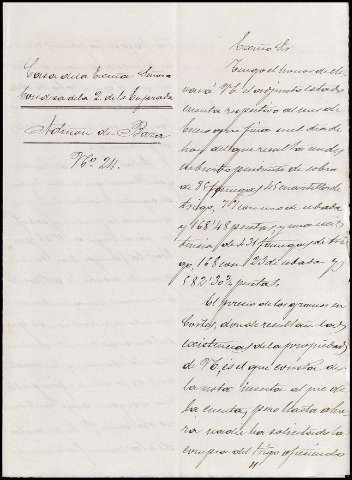 Casa de la Excma Señora
Condesa de la
Admon de Baza
Nº 24.
Excmo Sr
Tengo el honor de ele
var á V.E. el adjunto estado
cuenta respectivo al mes de
Enero que finó en el dia de
hoy, del que resulta un des
cubierto pendiente de cobro
de fanegas 45 cuartillos de
trigo, con uno de cebada
y 168'48 pesetas y una exis
tencia de 431 fanegas de tri
go, 168 con 23 de cebada y
582'30 pesetas.
El precio de los granos en
Cortes, donde resultan las
existencias de la propiedad
de V.E. es el que consta de
la nota inserta al pie de
la cuenta, pero hasta aho
ra nadie ha solicitado la
compra del trigo ofreciendo